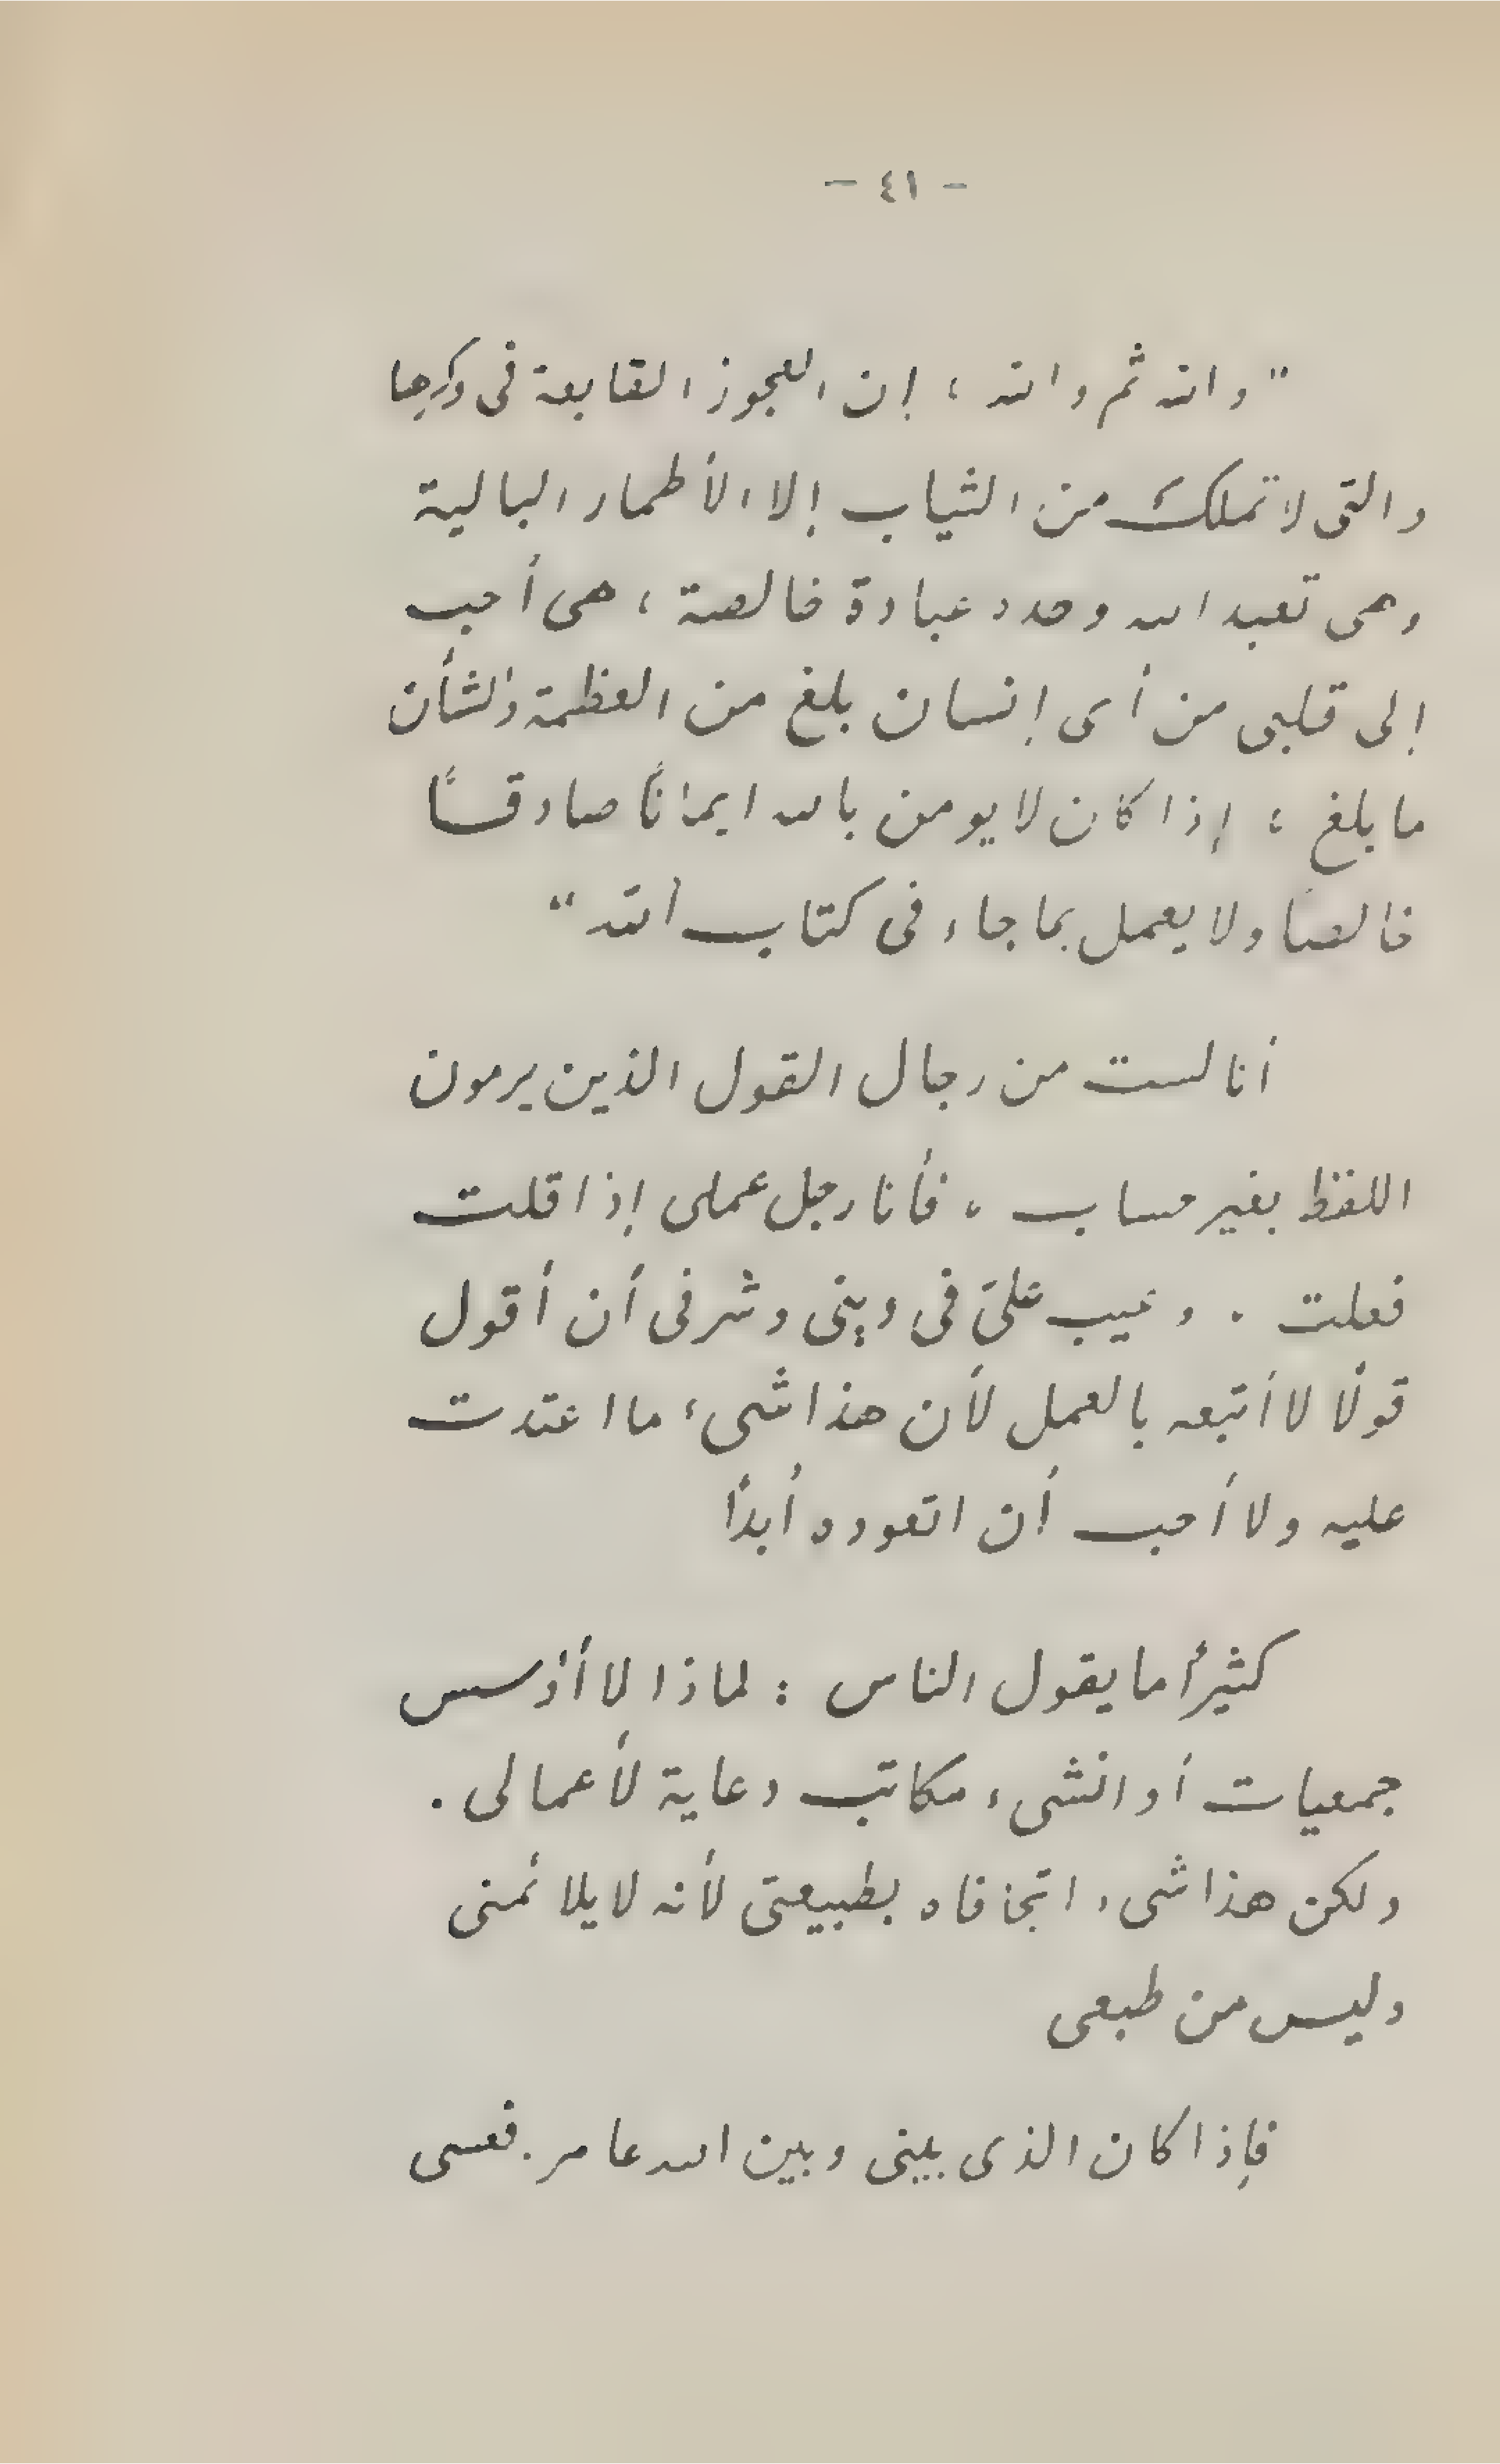 - ٤١ -
"والله ثم والله ، إن العجوز القابعة فى وكرها
والتى لا تملك من الثياب إلا الأطمار البالية
وهى تعبد الله وحده عبادة خالصة ، هى أحب
إلى قلبى من أى إنسان بلغ من العظمة والشأن
ما بلغ ؛ إذا كان لا يومن بالله ايمانًا صادقًا
خالصًا ولا يعمل بما جاء فى كتاب الله"
أنا لست من رجال القول الذين يرمون
اللفظ بغير حساب ، فأنا رجل عملى إذا قلت
فعلت . وعيب علىّ فى دينى وشرفى أن أقول
قولًا لا أتبعه بالعمل لأن هذا شىء ما اعتدت
عليه ولا أحب أن اتعوده أبدًا
كثيرًا ما يقول الناس : لماذا لا أؤسس
جمعيات أو انشىء مكاتب دعاية لأعمالى .
ولكن هذا شىء اتجافاه بطبيعتى لأنه لا يلائمنى
وليس من طبعى
فإذا كان الذى بينى وبين الله عامر . فعسى